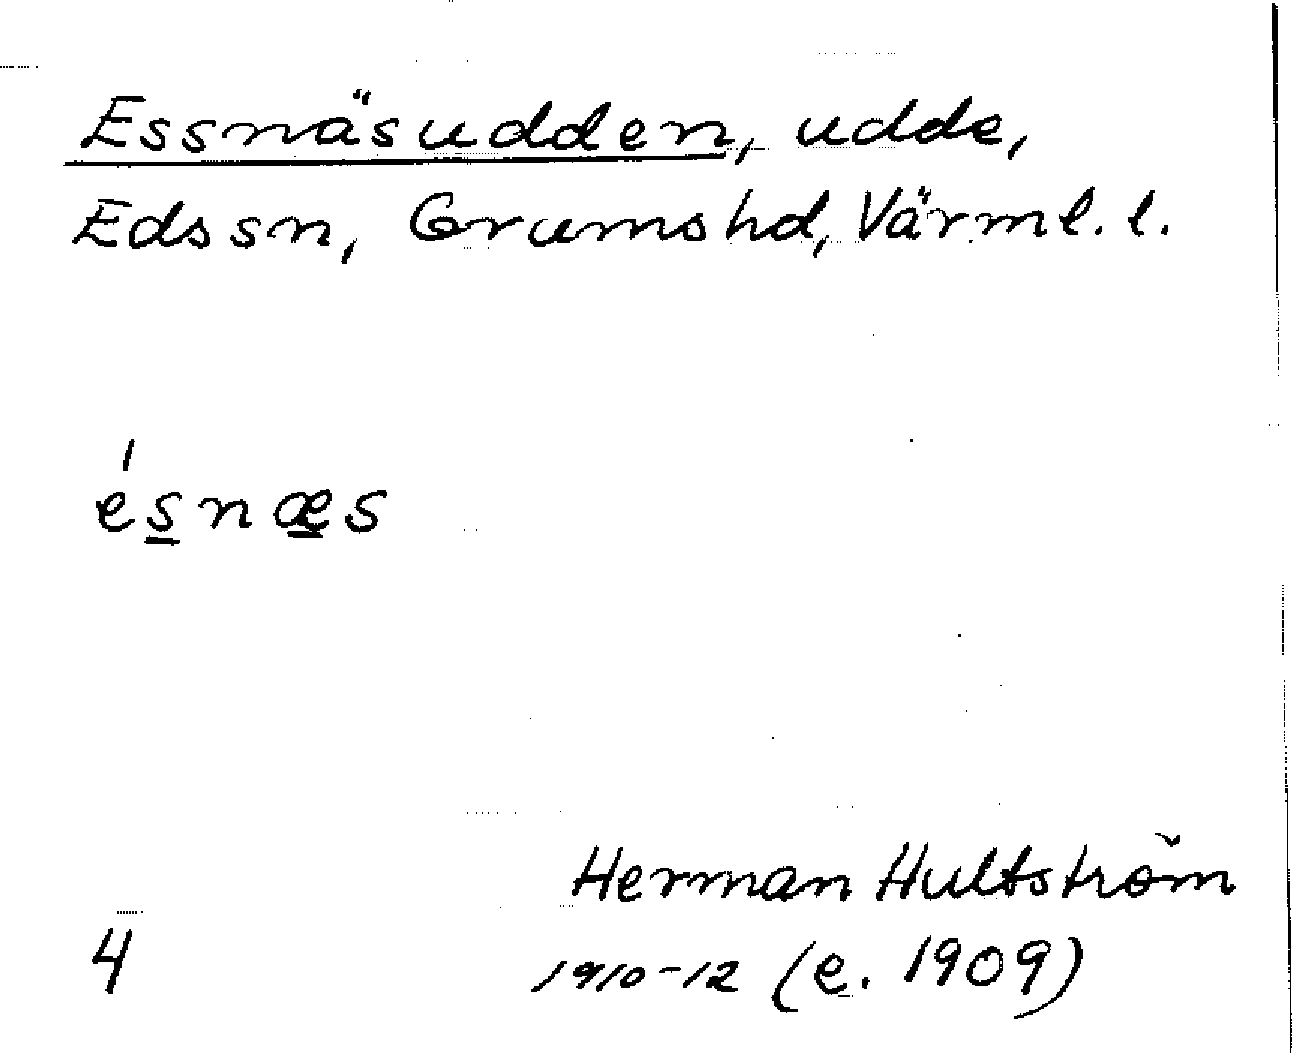 Essnäsudden, udde,
Eds sn, Grums hd, Värml. l.
ésnæs
Herman Hultström
4 1910-12 (e. 1909)